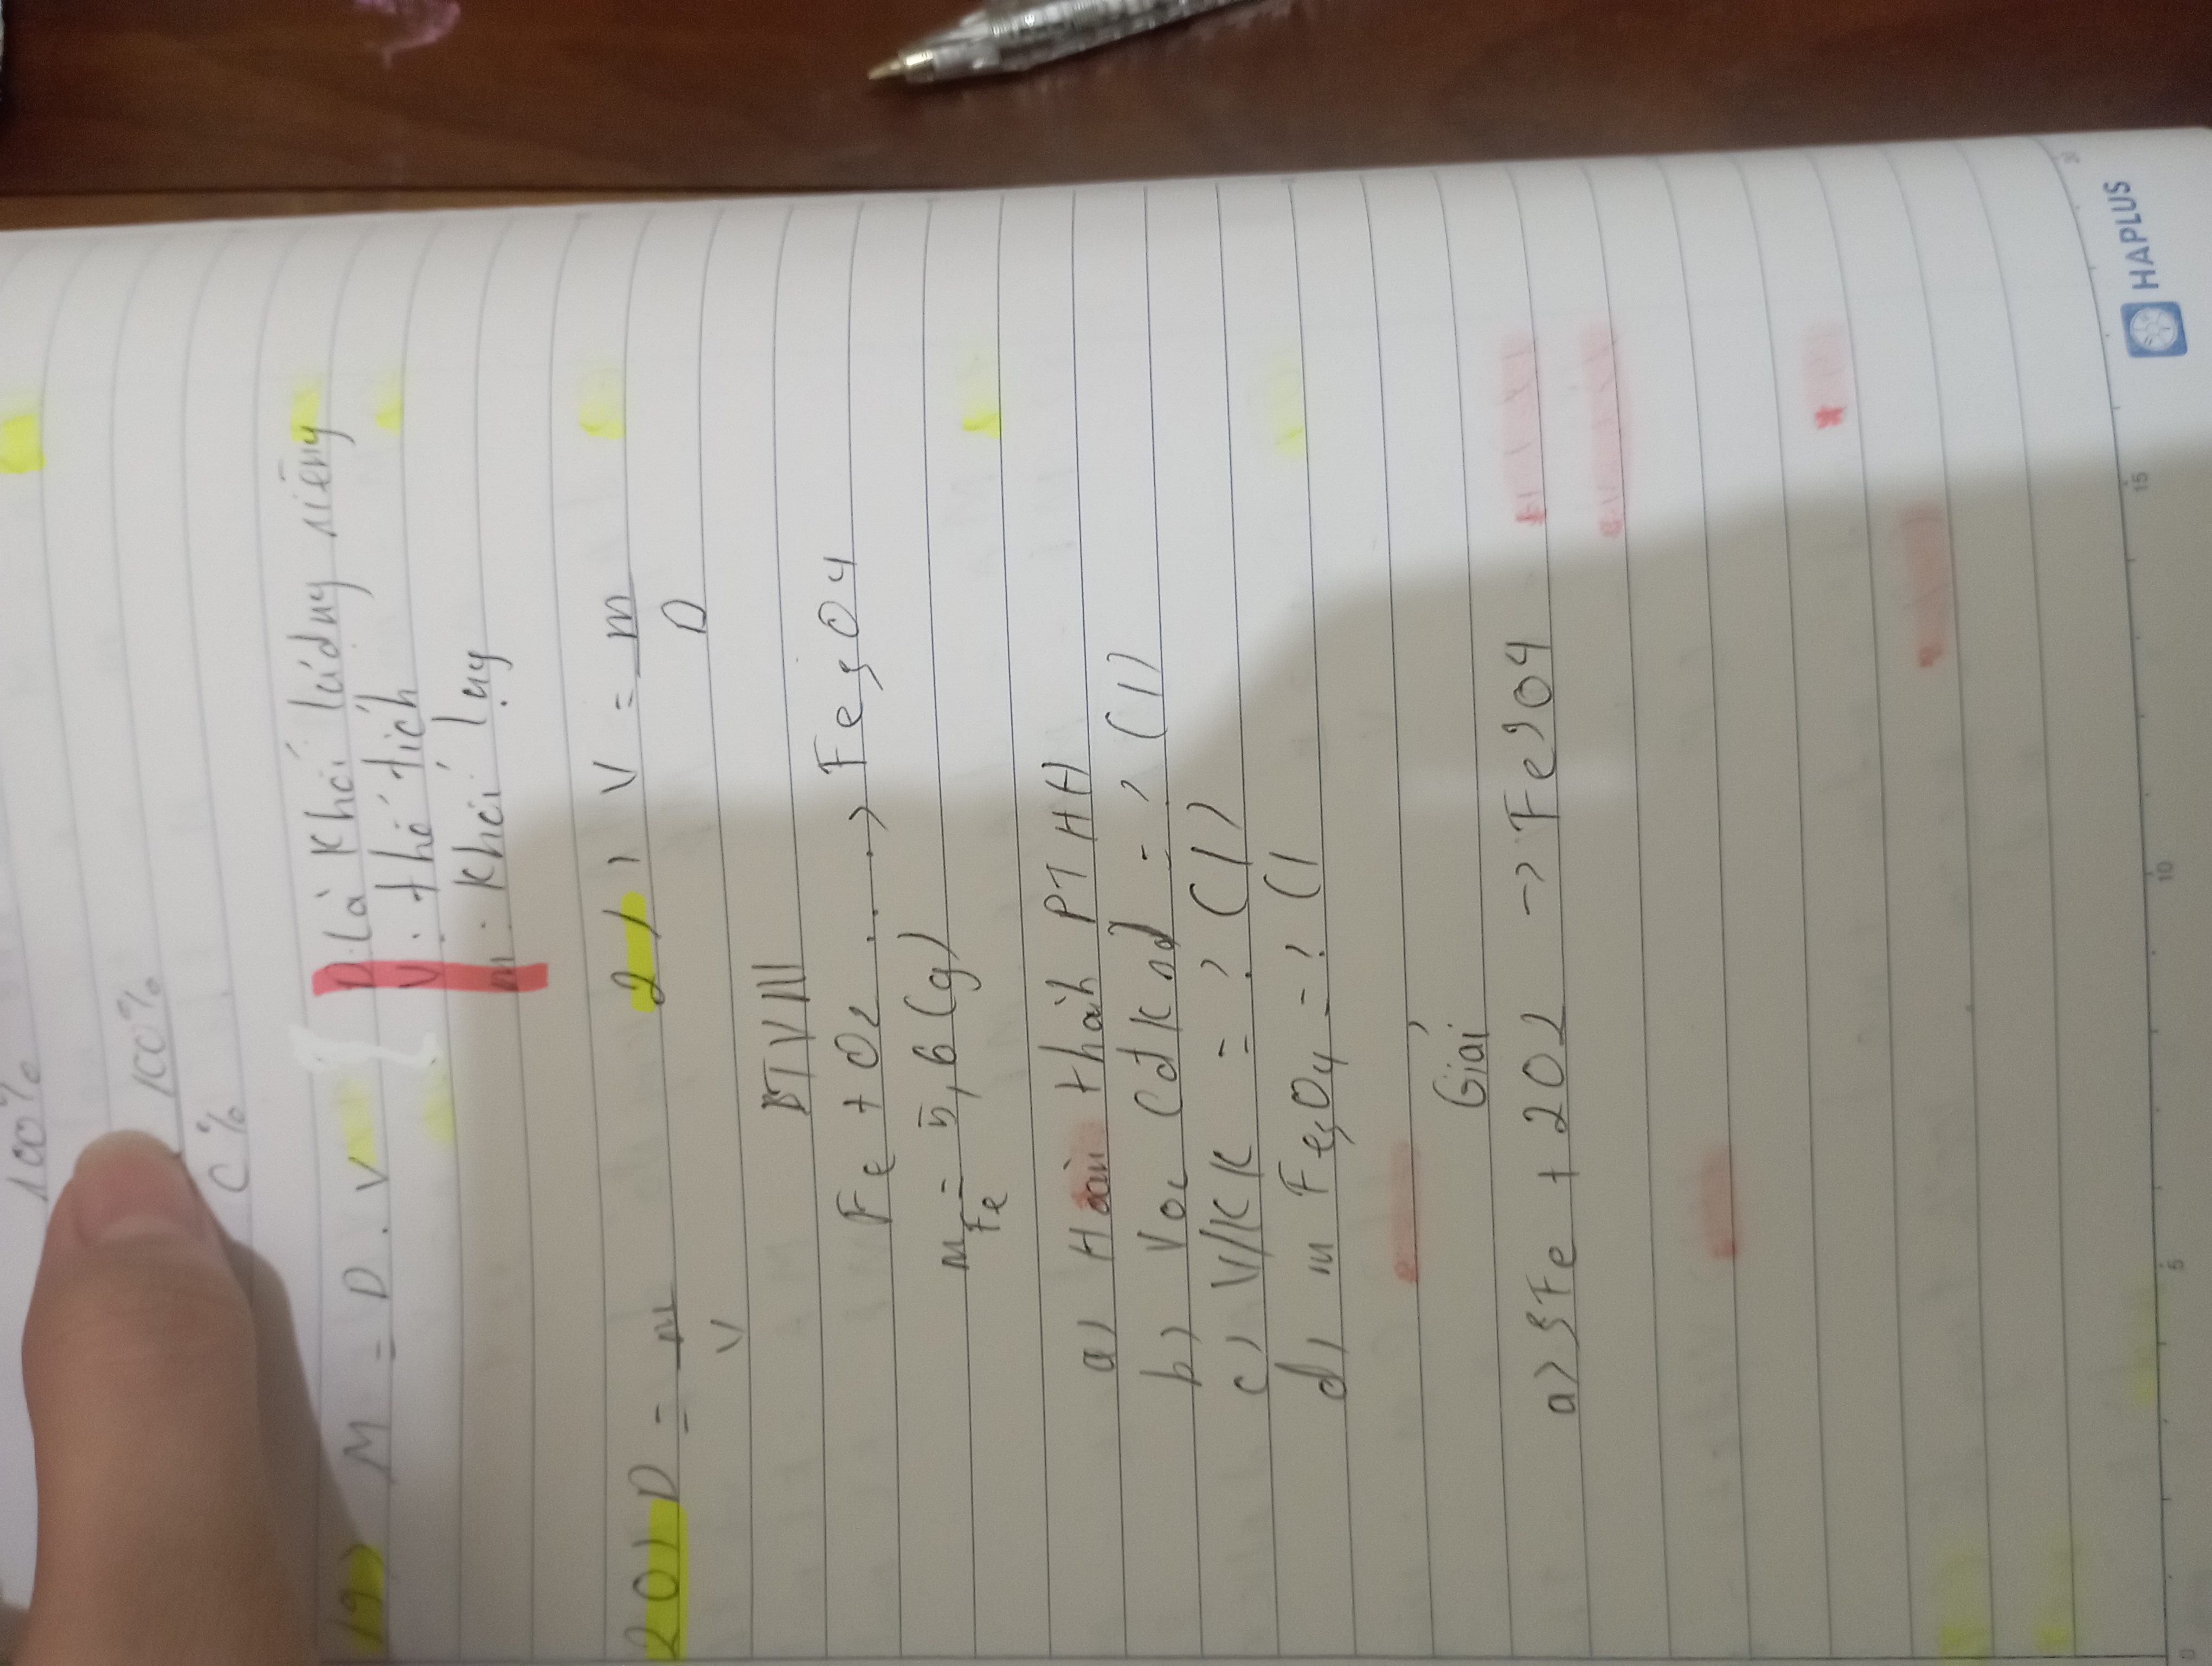 100%
100%
C%
19) M = D . V
D là khối lượng riêng
V. thể tích
m. khối lg
20) D = m
V
21) V = m
D
BTVN
Fe + O2 ....> Fe3O4
mFe = 5,6 (g)
a) Hoàn thành PTHH
b) VO2 (đktc) = ? (l)
c) VKK = ? (l)
d) m Fe3O4 = ? (
Giải
a) 3Fe + 2O2 -> Fe3O4
HAPLUS
0 5 10 15 20